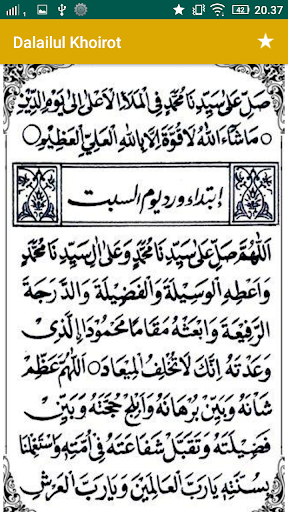 20.37
Dalailul Khoirot
صَلِّ عَلَى سَيِّدِنَا مُحَمَّدٍ فِي الْمَلَاءِ الْأَعْلَى إِلَى يَوْمِ الدِّيْنِ
مَاشَاءَ اللهُ لَا قُوَّةَ إِلَّا بِاللهِ الْعَلِيِّ الْعَظِيْمِ
إبتداء ورد يوم السبت
اَللّٰهُمَّ صَلِّ عَلَى سَيِّدِنَا مُحَمَّدٍ وَعَلَى اٰلِ سَيِّدِنَا مُحَمَّدٍ
وَاَعْطِهِ الْوَسِيْلَةَ وَالْفَضِيْلَةَ وَالدَّرَجَةَ
الرَّفِيْعَةَ وَابْعَثْهُ مَقَامًا مَحْمُوْدًا الَّذِى
وَعَدْتَهُ اِنَّكَ لَا تُخْلِفُ الْمِيْعَادَ اَللّٰهُمَّ عَظِّمْ
شَأْنَهُ وَبَيِّنْ بُرْهَانَهُ وَاَبْلِجْ حُجَّتَهُ وَبَيِّنْ
فَضِيْلَتَهُ وَتَقَبَّلْ شَفَاعَتَهُ فِى اُمَّتِهِ وَاسْتَعْمِلْنَا
بِسُنَّتِهِ يَارَبَّ الْعَالَمِيْنَ وَيَارَبَّ الْعَرْشِ